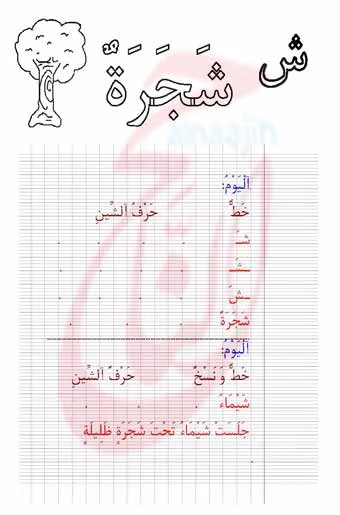 ش
شَجَرَةٌ
اَلْيَوْمُ:
خَطٌّ حَرْفُ اَلشِّينِ
شـَ . . . .
ـشَـ . . . .
ـشَ . . . .
شَجَرَةٌ . . .
اَلْيَوْمُ:
خَطٌّ وَ نَسْخٌ حَرْفُ اَلشِّينِ
شَيْمَاءُ . . .
جَلَسَتْ شَيْمَاءُ تَحْتَ شَجَرَةٍ ظَلِيلَةٍ
.